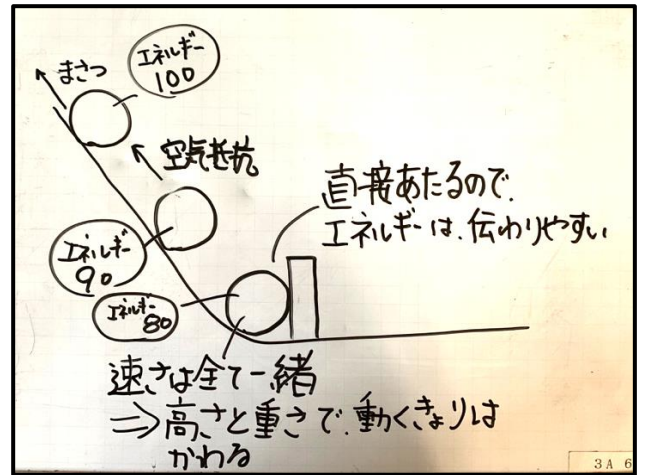 まさつ
エネルギー
100
空気抵抗
エネルギー
90
エネルギー
80
直接あたるので、
エネルギーは、伝わりやすい
速さは全て一緒
⇒高さと重さで、動くきょりは
かわる
3A 6